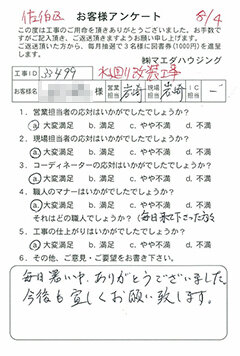 佐伯区 お客様アンケート 8/4
この度は工事のご用命を頂きありがとうございました。お手数で
すがご記入頂き、ご返送頂きますようお願い申し上げます。
ご返送頂いた方から、毎月抽選で3名様に図書券(1000円)を進呈
します。
㈱マエダハウジング
工事ID 33499 水廻り改装工事
お客様名 様 営業担当 岩崎 現場担当 岩崎 IC担当 ー
1．営業担当者の応対はいかがでしたでしょうか?
a 大変満足 b. 満足 c. やや不満 d. 不満
2．現場担当者の応対はいかがでしたでしょうか?
a 大変満足 b. 満足 c. やや不満 d. 不満
3．コーディネーターの応対はいかがでしたでしょうか?
a. 大変満足 b. 満足 c. やや不満 d. 不満
4．職人のマナーはいかがでしたでしょうか?
a 大変満足 b. 満足 c. やや不満 d. 不満
それはどの職人でしょうか? (毎日来て下さった方々)
5．工事の仕上がりはいかがでしたでしょうか?
a 大変満足 b. 満足 c. やや不満 d. 不満
6．その他、ご意見・ご要望をお書き下さい。
毎日暑い中、ありがとうございました。
今後も宜しくお願い致します。